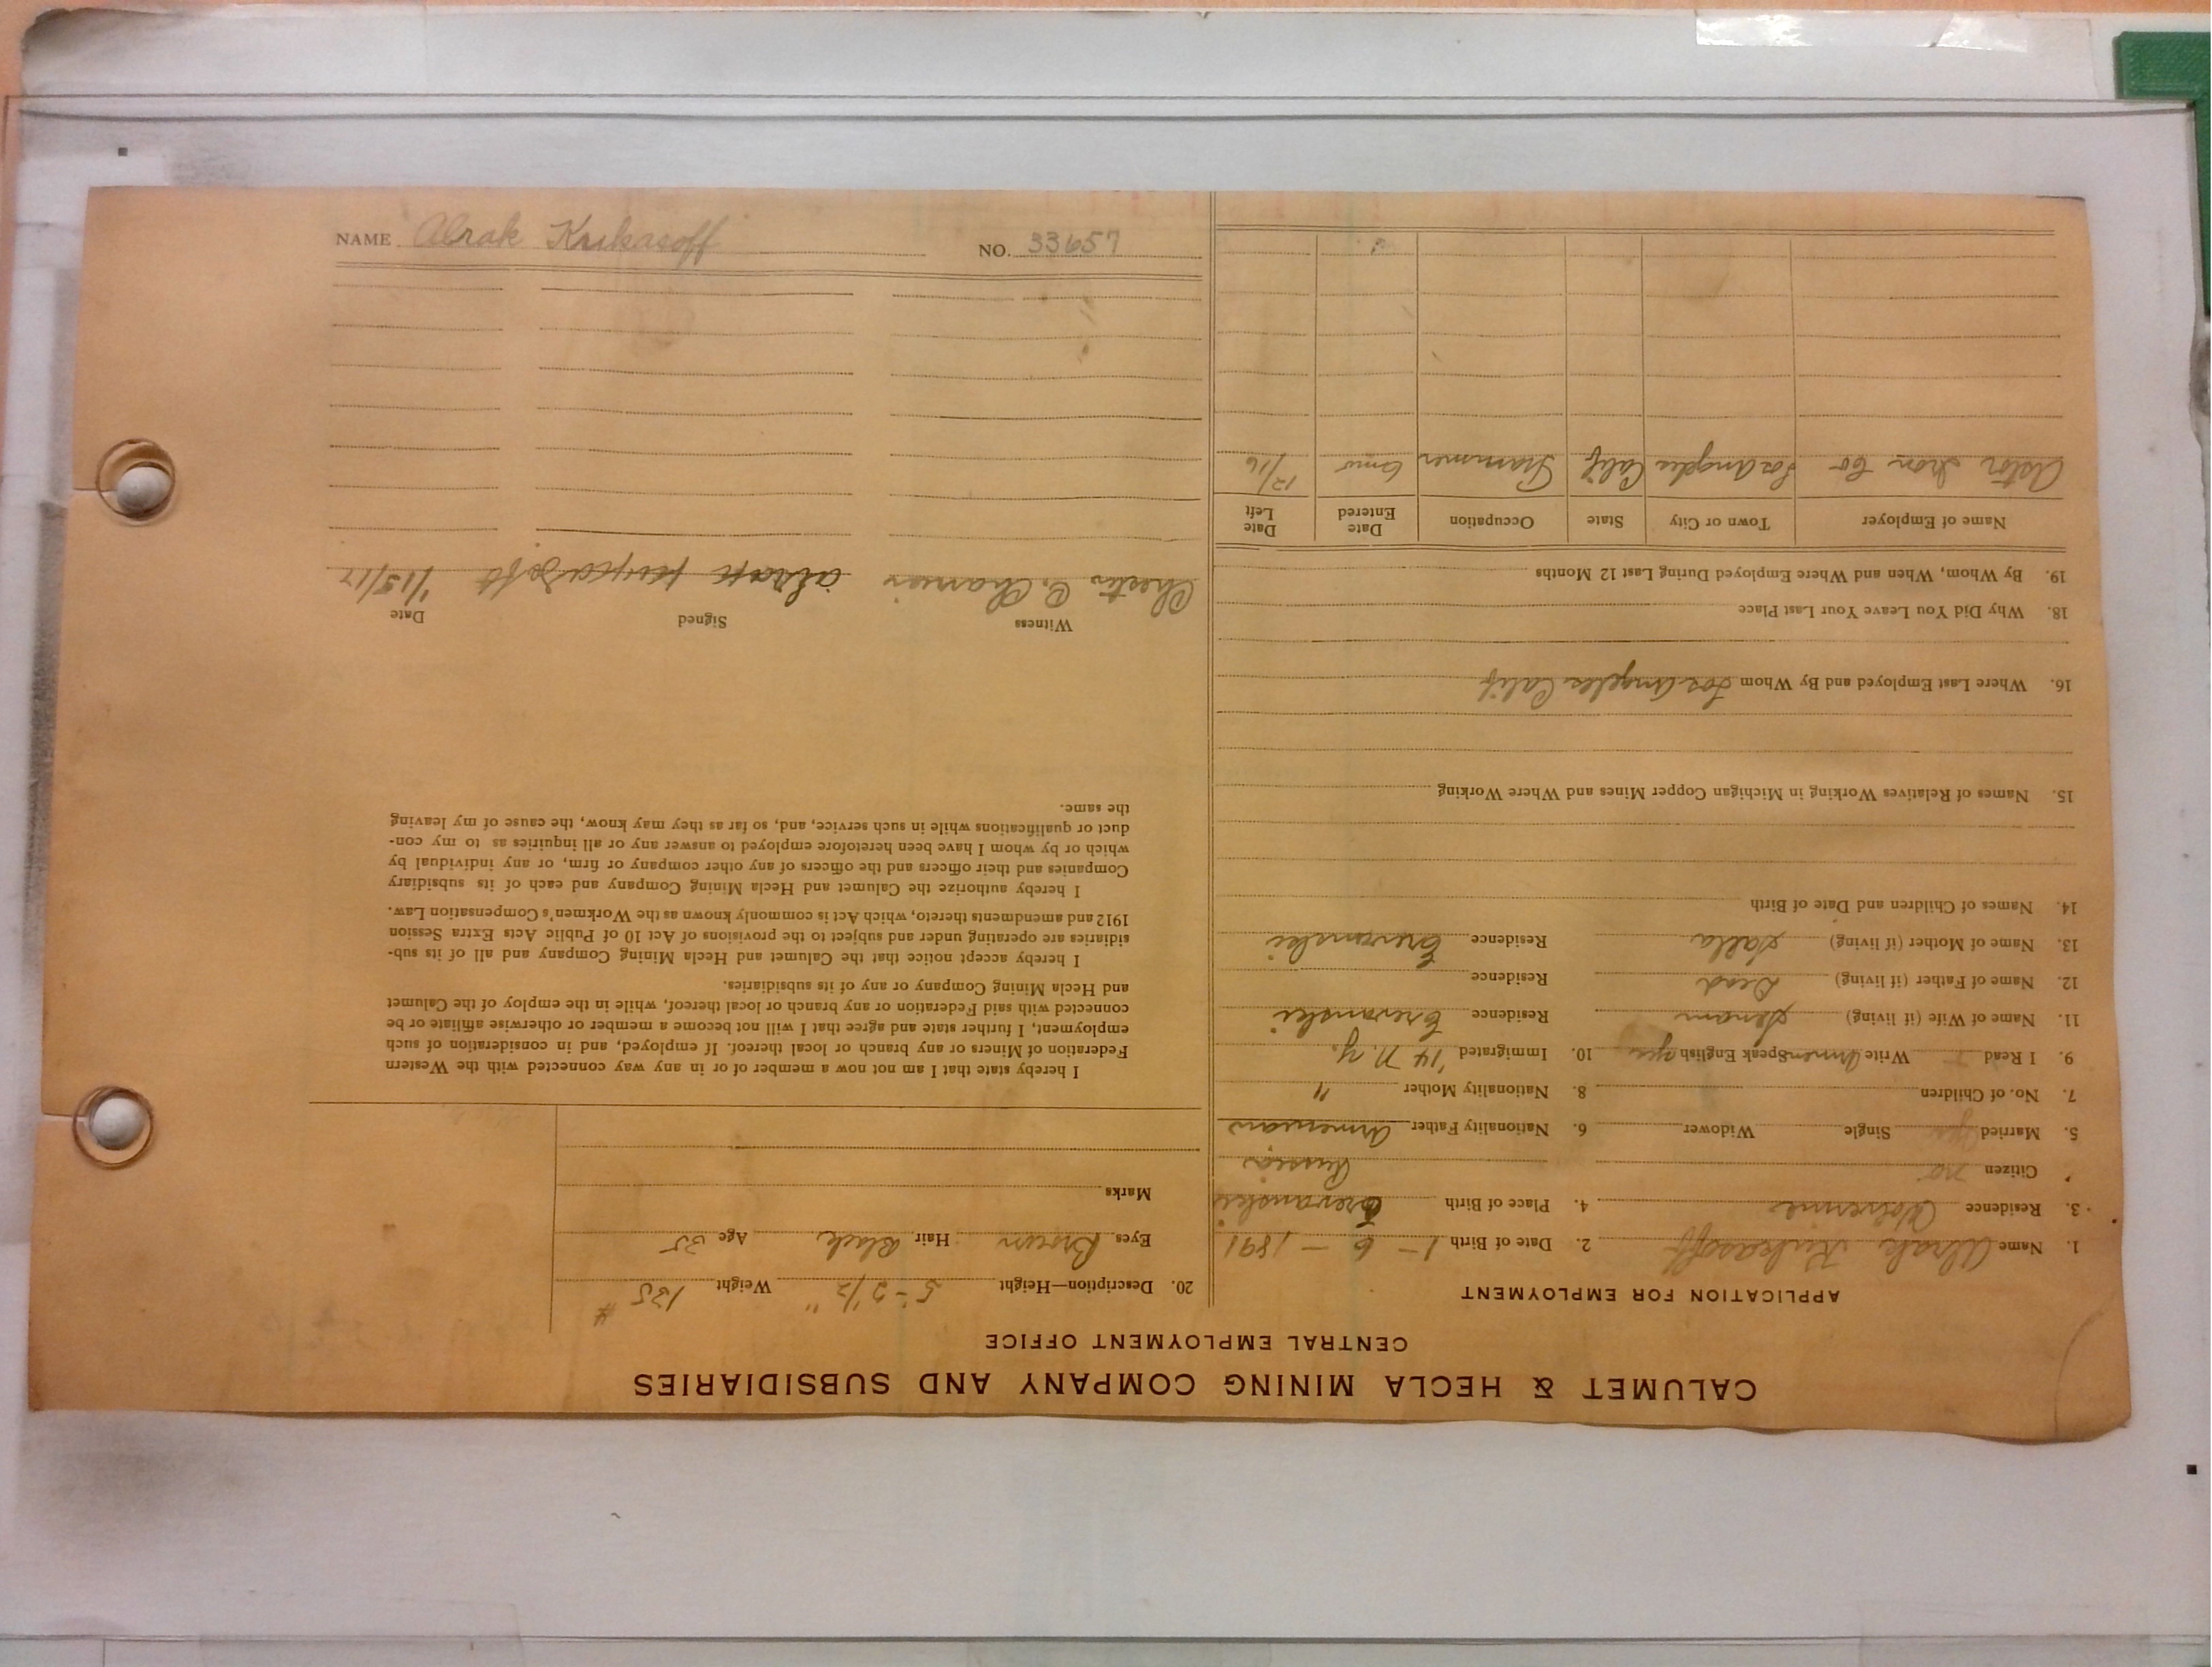 CALUMET & HECLA MINING COMPANY AND SUBSIDIARIES
CENTRAL EMPLOYMENT OFFICE
APPLICATION FOR EMPLOYMENT
1. Name Abrak Kukasoff 2. Date of Birth 1 - 6 - 1891
3. Residence Wolverine 4. Place of Birth Erevanskii
Citizen no Russia
5. Married yes Single Widower 6. Nationality Father Armenian
7. No. of Children 8. Nationality Mother "
9. I Read Write Armen Speak English yes 10. Immigrated '14 N.Y.
11. Name of Wife (if living) Residence Erevanskii
12. Name of Father (if living) Dead Residence
13. Name of Mother (if living) Salla Residence Erevanskii
14. Names of Children and Date of Birth
15. Names of Relatives Working in Michigan Copper Mines and Where Working
16. Where Last Employed and By Whom Los Angeles Calif
18. Why Did You Leave Your Last Place
19. By Whom, When and Where Employed During Last 12 Months
Name of Employer Town or City State Occupation Date Entered Date Left
Astor Iron Co Los Angeles Calif Trammer 6 mo 12/16
20. Description—Height 5-2 1/2" Weight 135 #
Eyes Brown Hair Black Age 25
Marks
I hereby state that I am not now a member of or in any way connected with the Western
Federation of Miners or any branch or local thereof. If employed, and in consideration of such
employment, I further state and agree that I will not become a member or otherwise affiliate or be
connected with said Federation or any branch or local thereof, while in the employ of the Calumet
and Hecla Mining Company or any of its subsidiaries.
I hereby accept notice that the Calumet and Hecla Mining Company and all of its sub-
sidiaries are operating under and subject to the provisions of Act 10 of Public Acts Extra Session
1912 and amendments thereto, which Act is commonly known as the Workmen's Compensation Law.
I hereby authorize the Calumet and Hecla Mining Company and each of its subsidiary
Companies and their officers and the officers of any other company or firm, or any individual by
which or by whom I have been heretofore employed to answer any or all inquiries as to my con-
duct or qualifications while in such service, and, so far as they may know, the cause of my leaving
the same.
Witness Signed Date
Chester C. 1/15/17
NAME Abrak Kukasoff NO. 33657